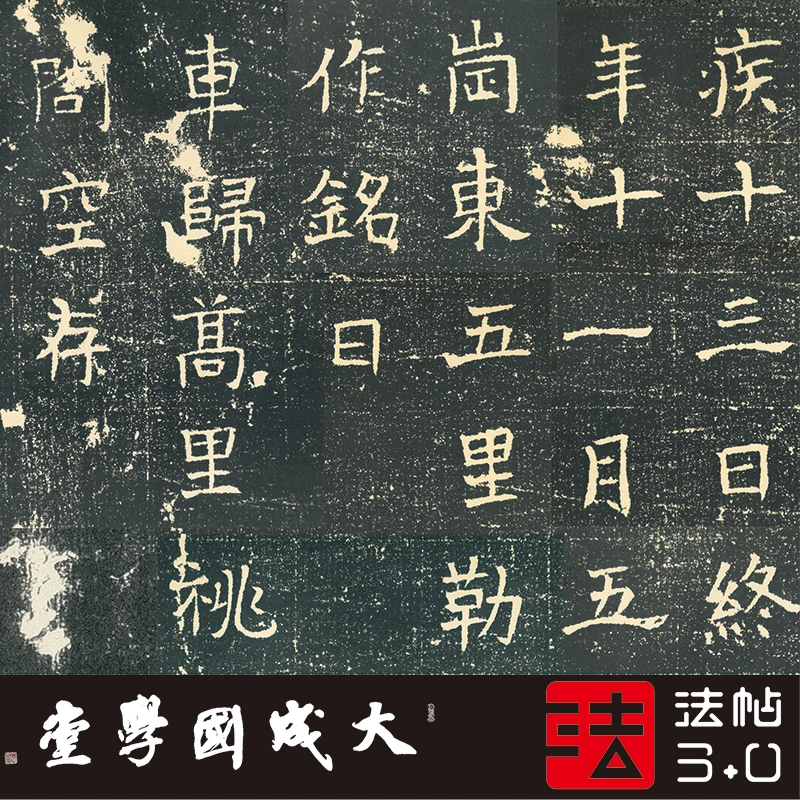 疾十三日終
年十一月五
崗東五里勒
作銘曰
車歸髙里祧
問空存
大成國學堂
法
法帖
3.0